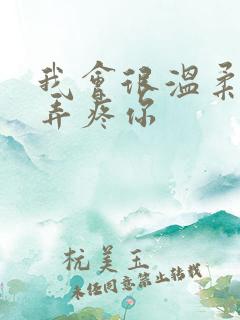 我會很溫柔
弄疼你
杭美玉
未经同意禁止转载